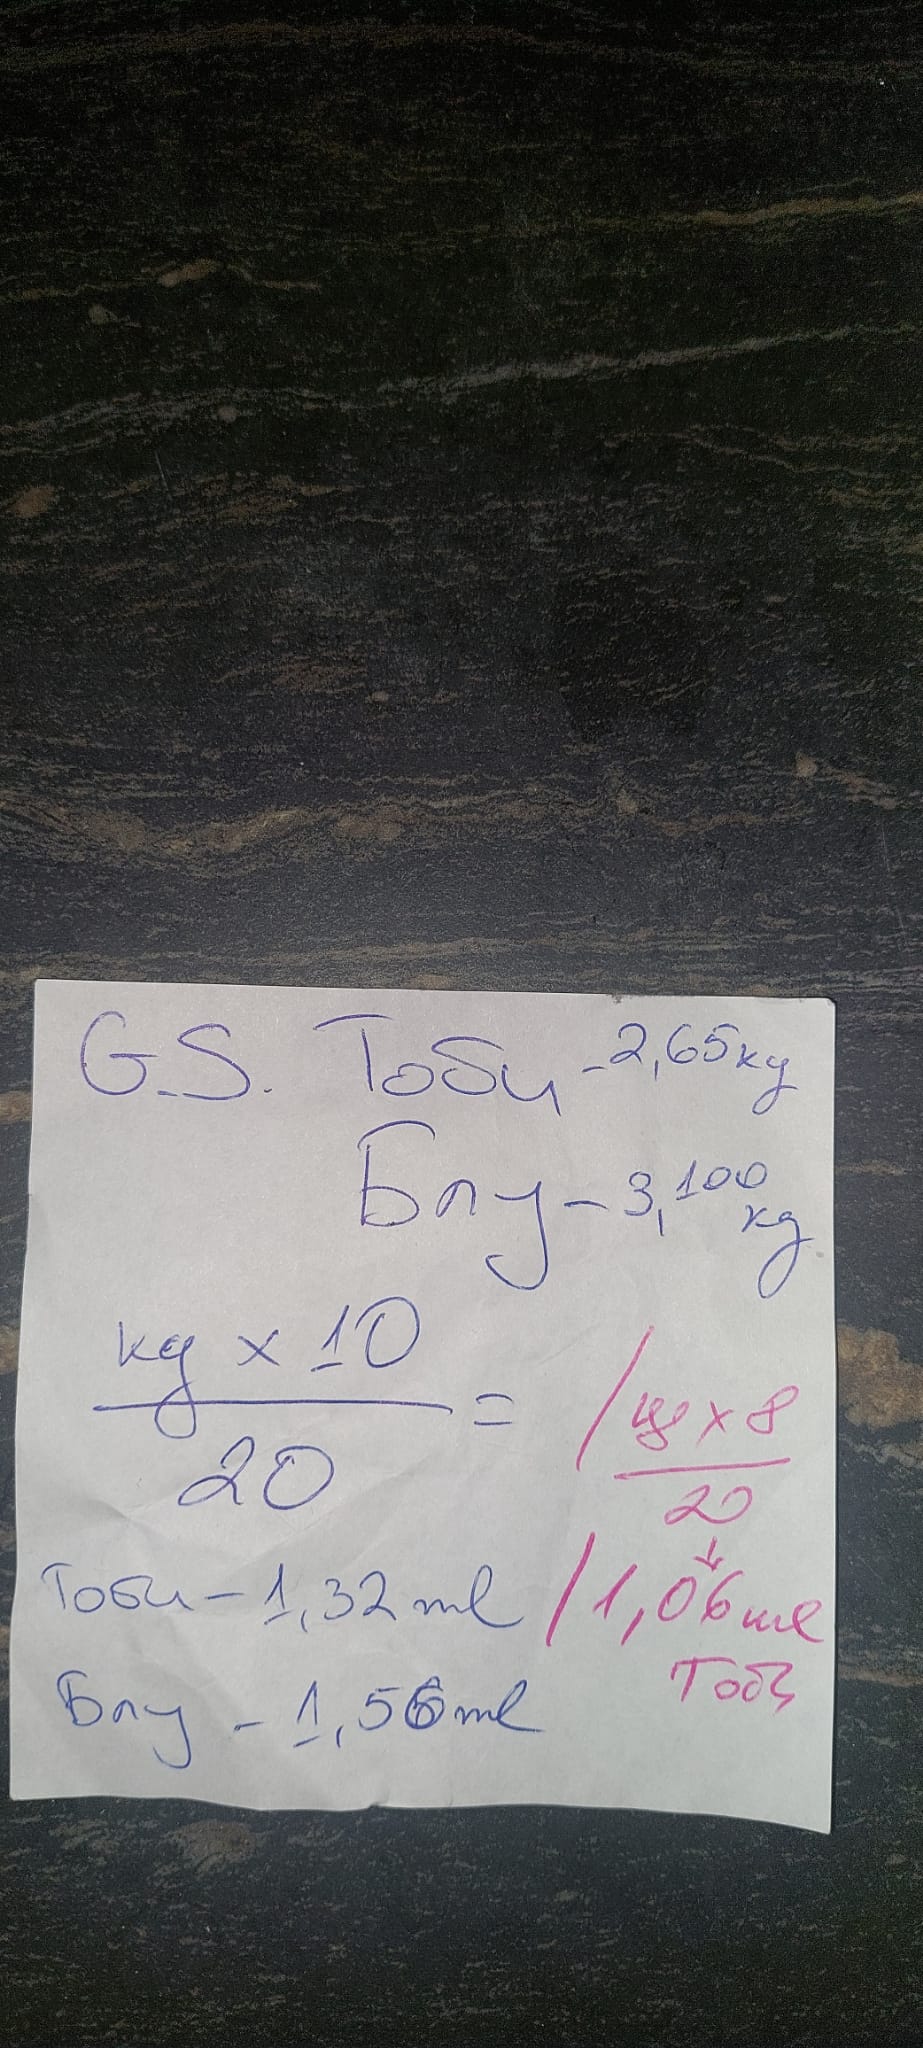 G.S. Тоби - 2,65 kg
Блу - 3,100 kg
kg x 10
20
=
/ kg x 8
20
Тоби - 1,32 ml / 1,06 ml
Тоби
Блу - 1,56 ml